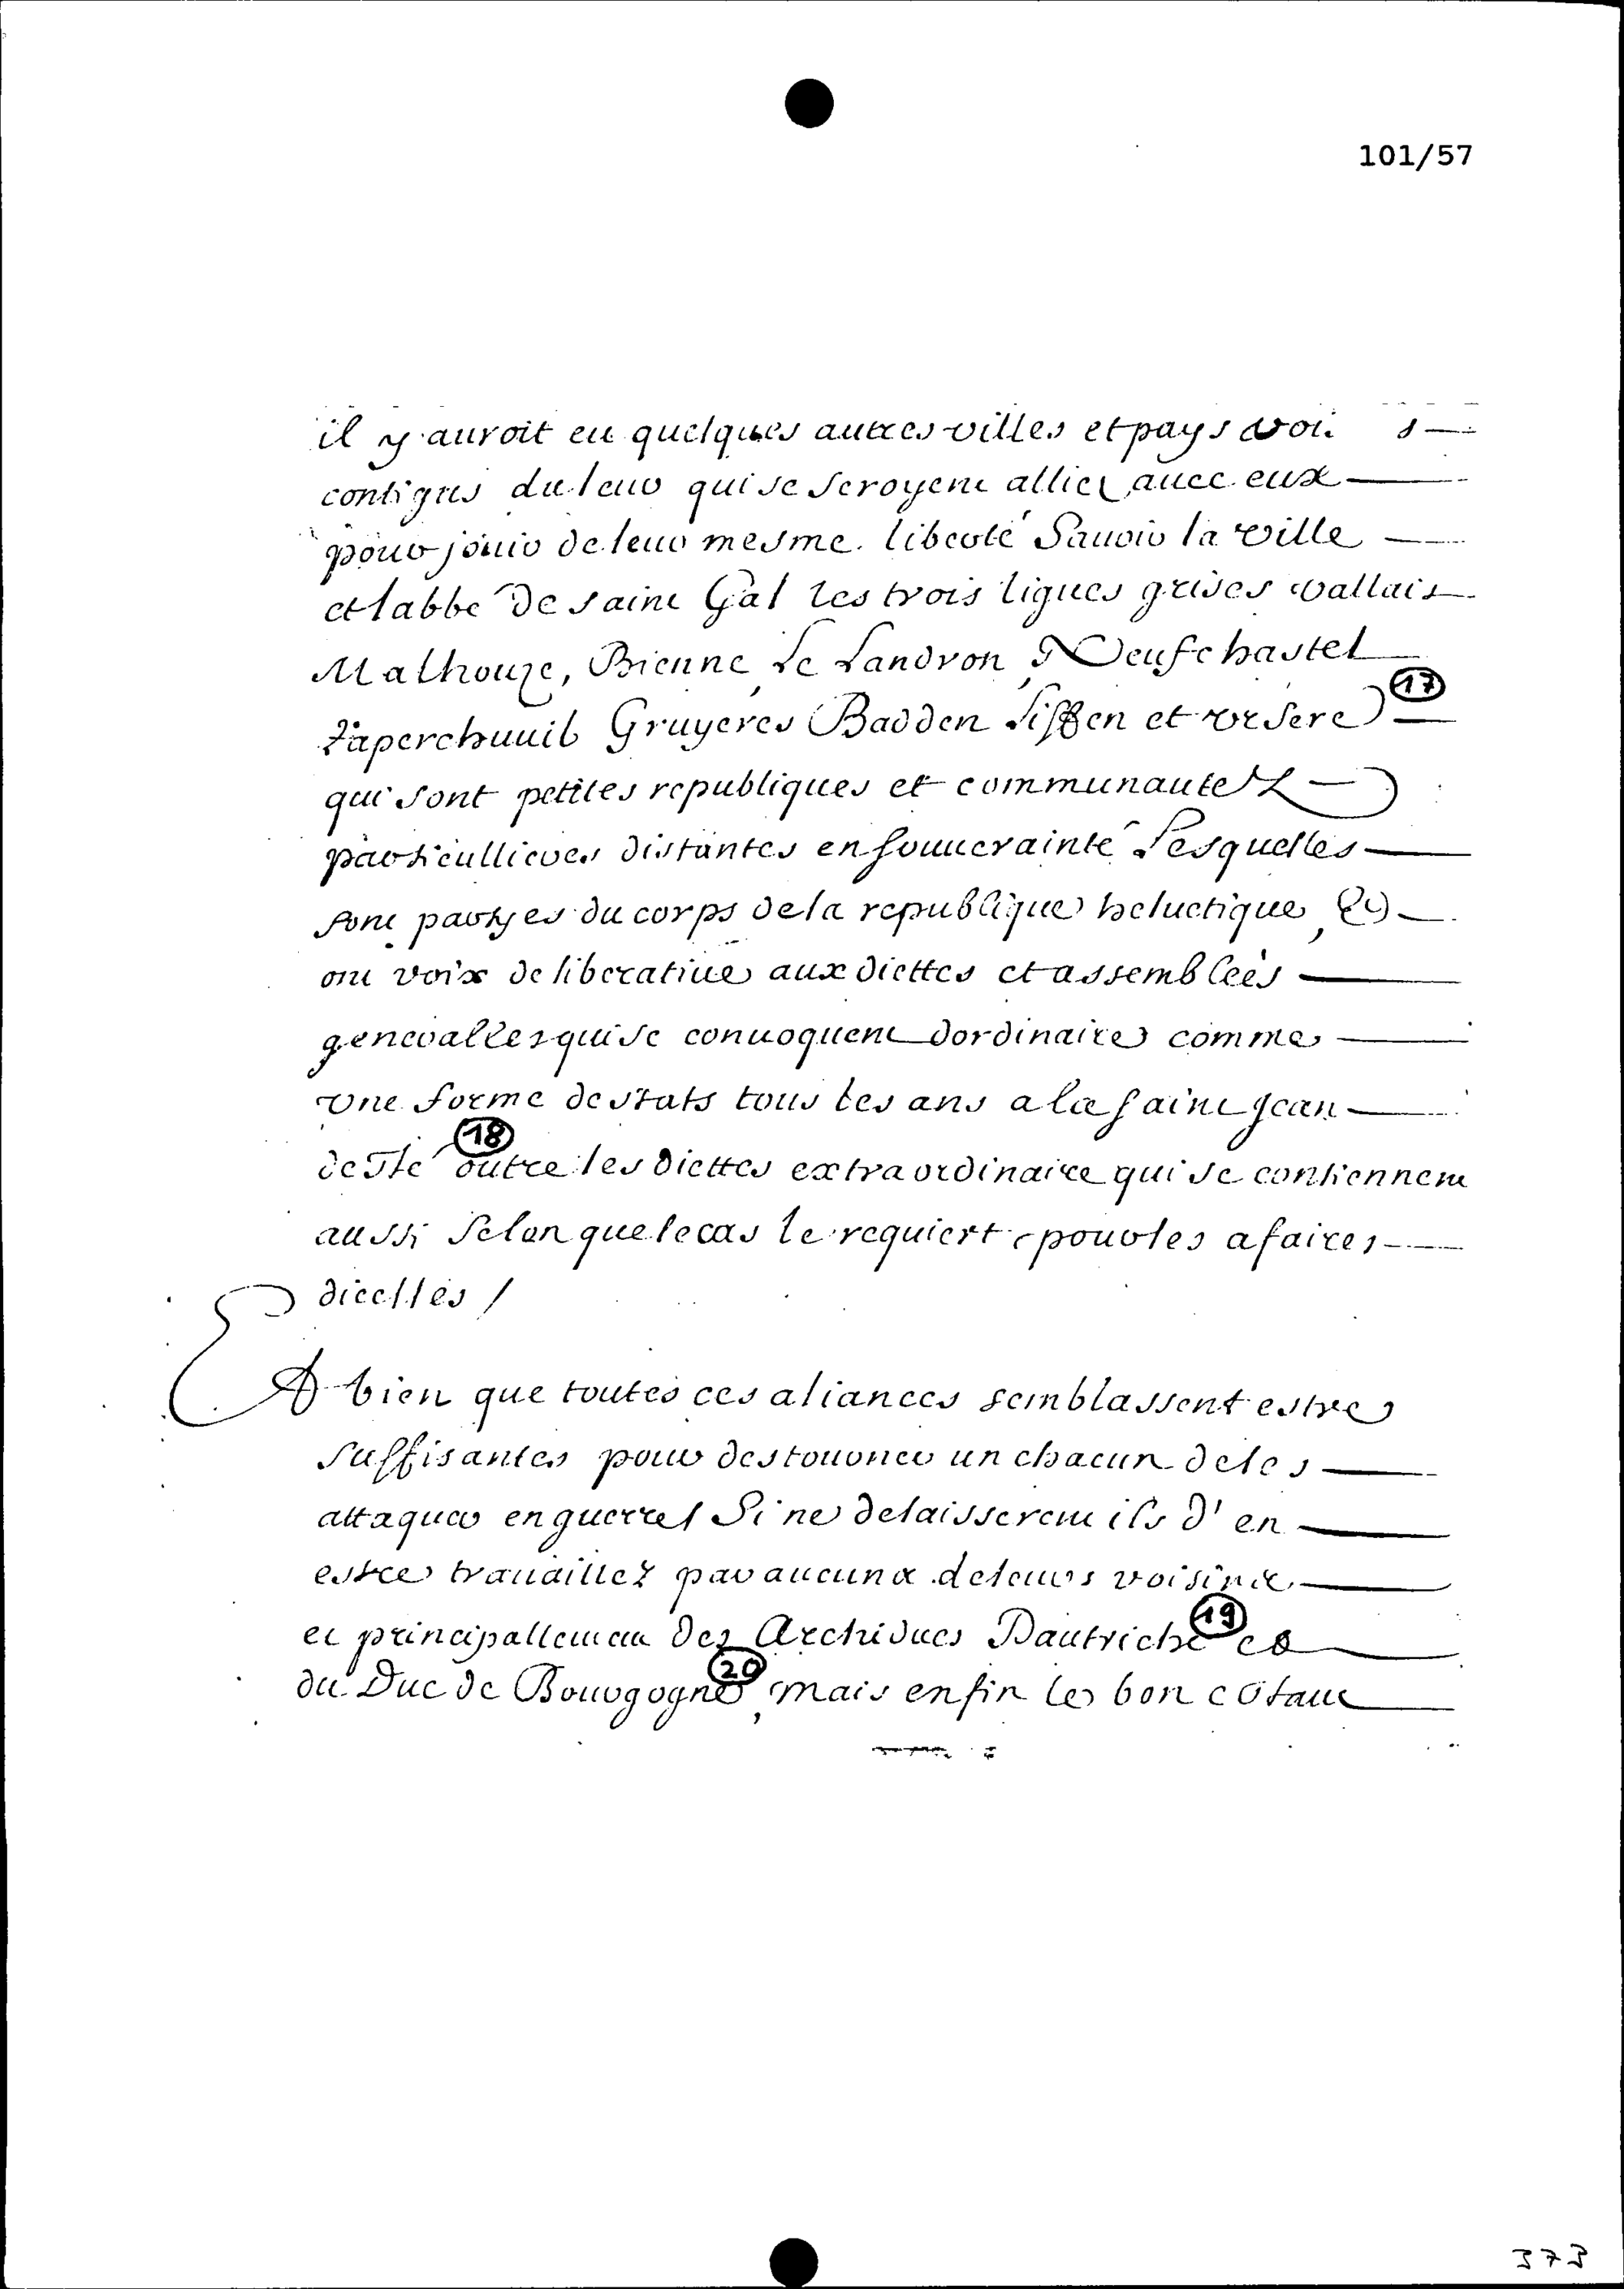 101/57
il y auroit eu quelques autres villes et pays voi s
contigus du leur qui se seroyent alliez avec eux
pour jouir de leur mesme liberté Sauoir la ville
et labbé de saint Gal les trois ligues grises vallais
Malhouze, Bienne, Le Landron, Neufchastel
Gruyeres Badden et
qui sont petites republiques et communautez
particullieres distantes en souuerainté Lesquelles
sont partyes du corps de la republique heluetique, et
ont voix deliberatiue aux diettes et assemblées
generalles qui se conuoquent dordinaire comme
vne forme destats tous les ans a la saint Jean
desté (18) outre les diettes extraordinaire qui se contiennent
aussi selon que le cas le requiert pour les afaires
dicelles /
Et bien que toutes ces aliances semblassent estre
suffisantes pour destourner un chacun de les
attaquer en guerre Si ne delaisserent ils d'en
estre trauaillez par aucuns de leurs voisins
et principallement des Archiducs Dautriche (19) et
du Duc de Bourgogne (20), mais enfin le bon
(17)
373